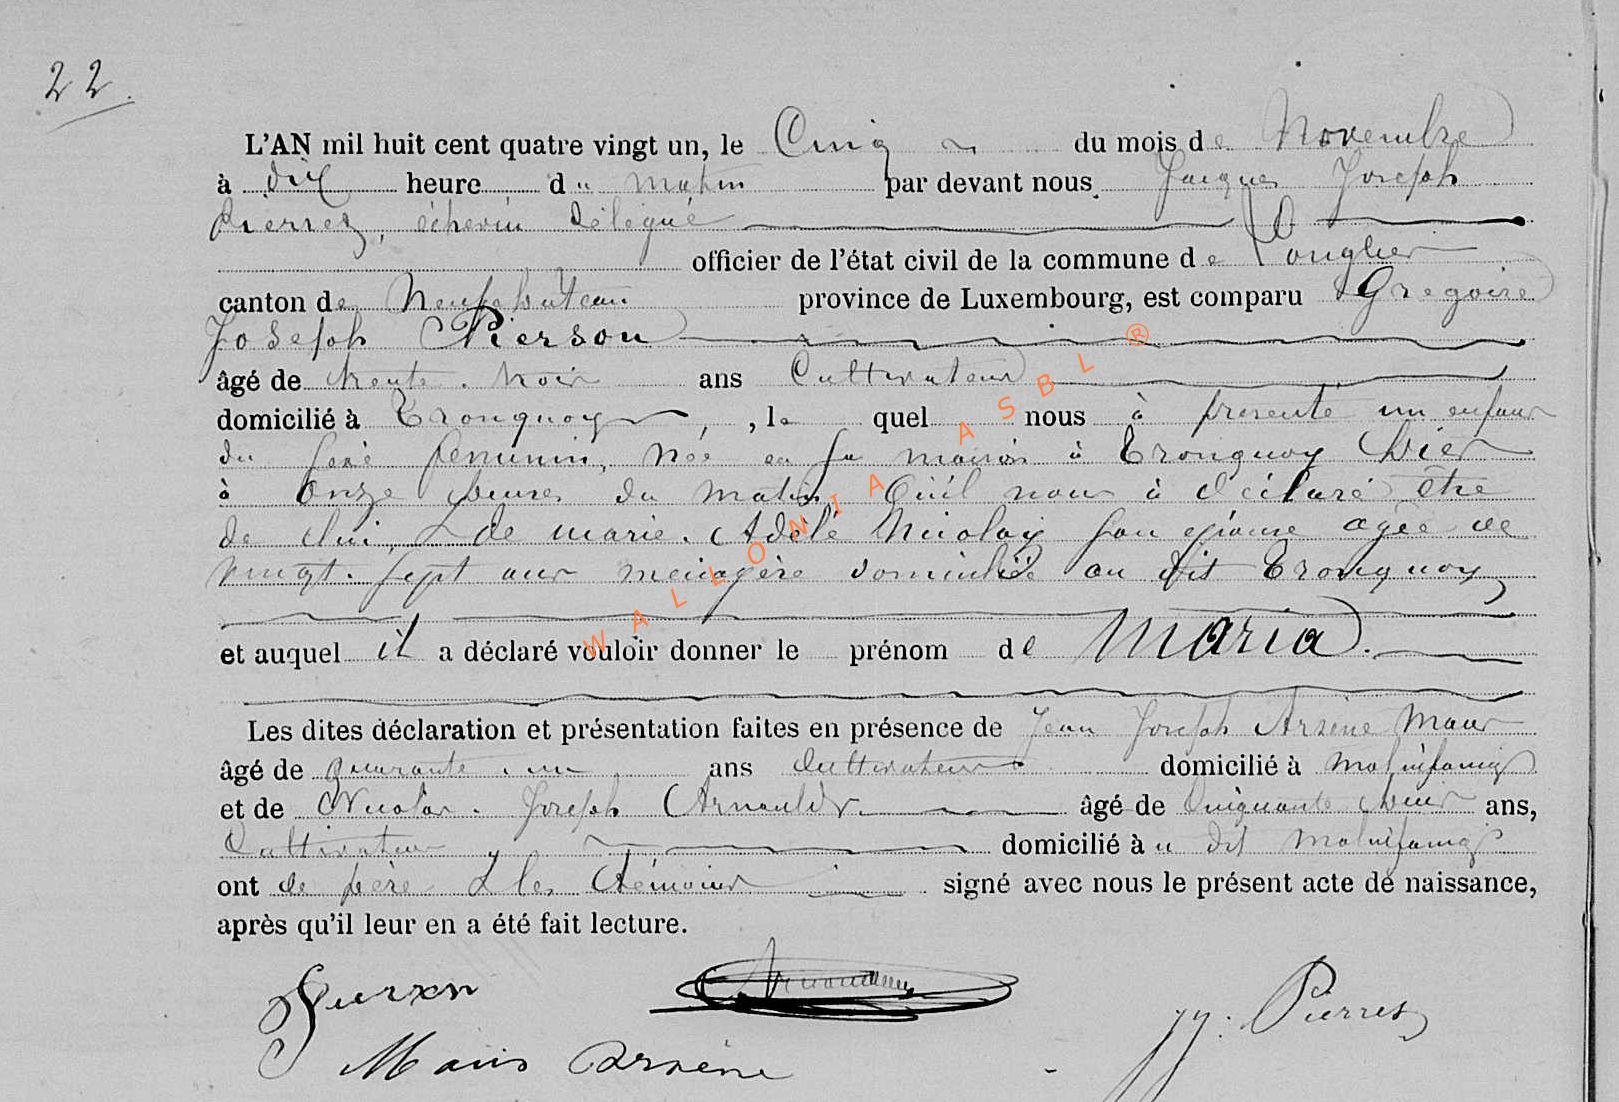 22.
L'AN mil huit cent quatre vingt un, le Cinq du mois de Novembre
à dix heure du matin par devant nous Jacques Joseph
Pierret, échevin délégué
officier de l'état civil de la commune de Longlier
canton de Neufchateau province de Luxembourg, est comparu Gregoire
Joseph Pierson
âgé de trente trois ans Cultivateur
domicilié à Tronquoy, le quel nous à presenté un enfant
du sexe feminin, née en sa maison à Tronquoy hier
à onze heures du matin Qu'il nous à déclaré être
de lui, & de marie Adèle Nicolay son épouse agée de
vingt sept ans menagère domiciliée au dit Tronquoy
et auquel il a déclaré vouloir donner le prénom de Maria.
Les dites déclaration et présentation faites en présence de Jean Joseph Arsène Maus
âgé de quarante un ans Cultivateur domicilié à
et de Nicolas Joseph âgé de Cinquante deux ans,
Cultivateur domicilié au dit
ont le père & les témoins signé avec nous le présent acte de naissance,
après qu'il leur en a été fait lecture.
Pierson
Maus Arsène
JJ. Pierret
WALLONIA ASBL ®